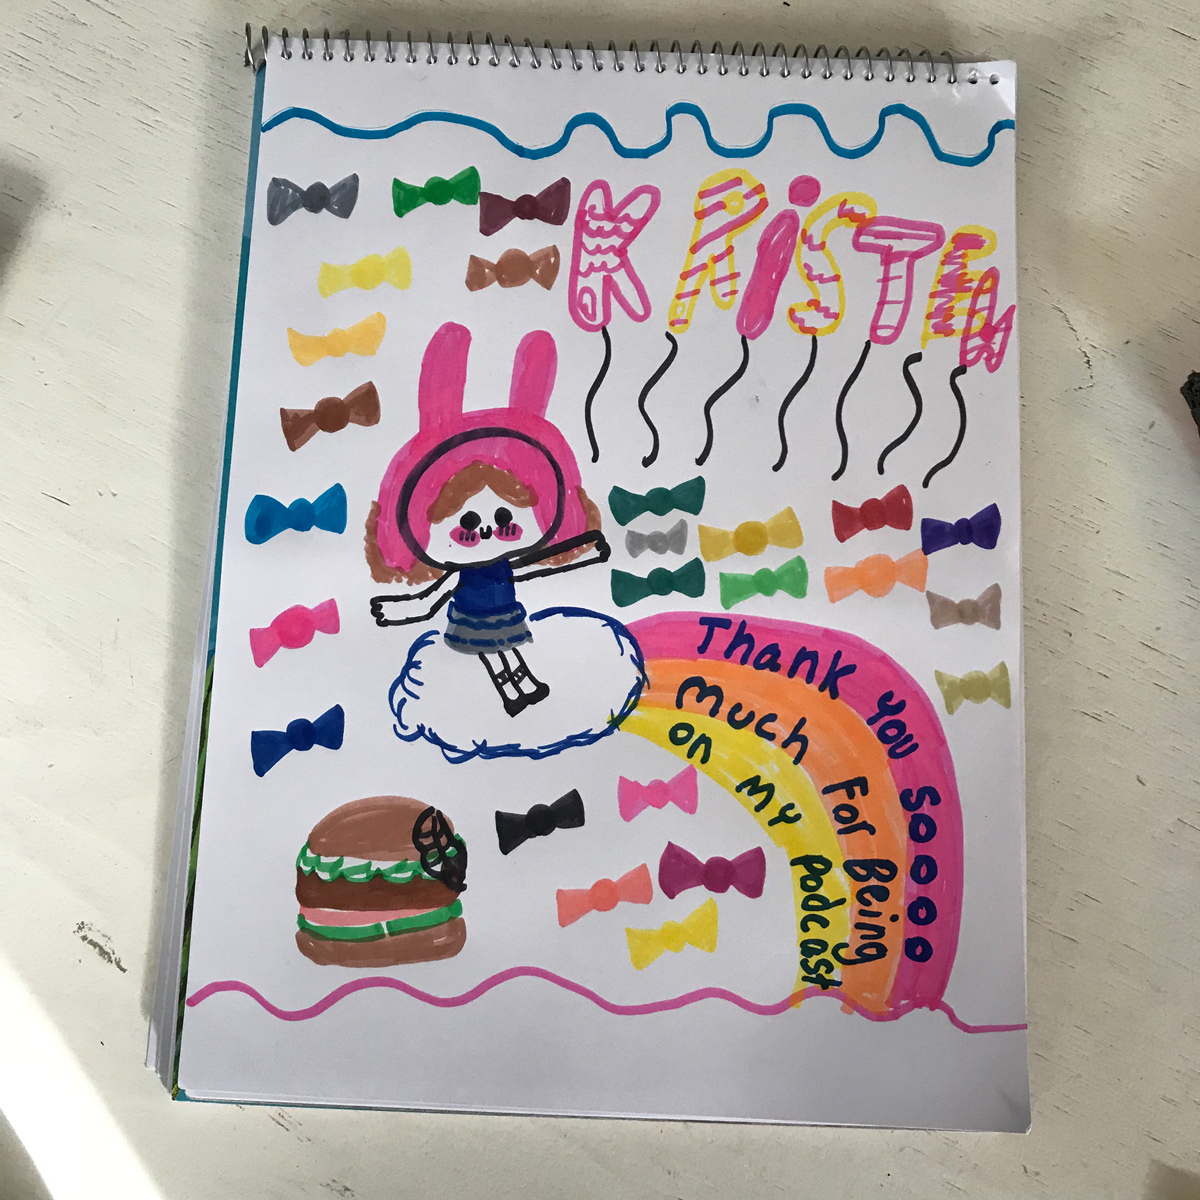 KRiSTEN
Thank you Sooooo
Much For Being
on My podcast